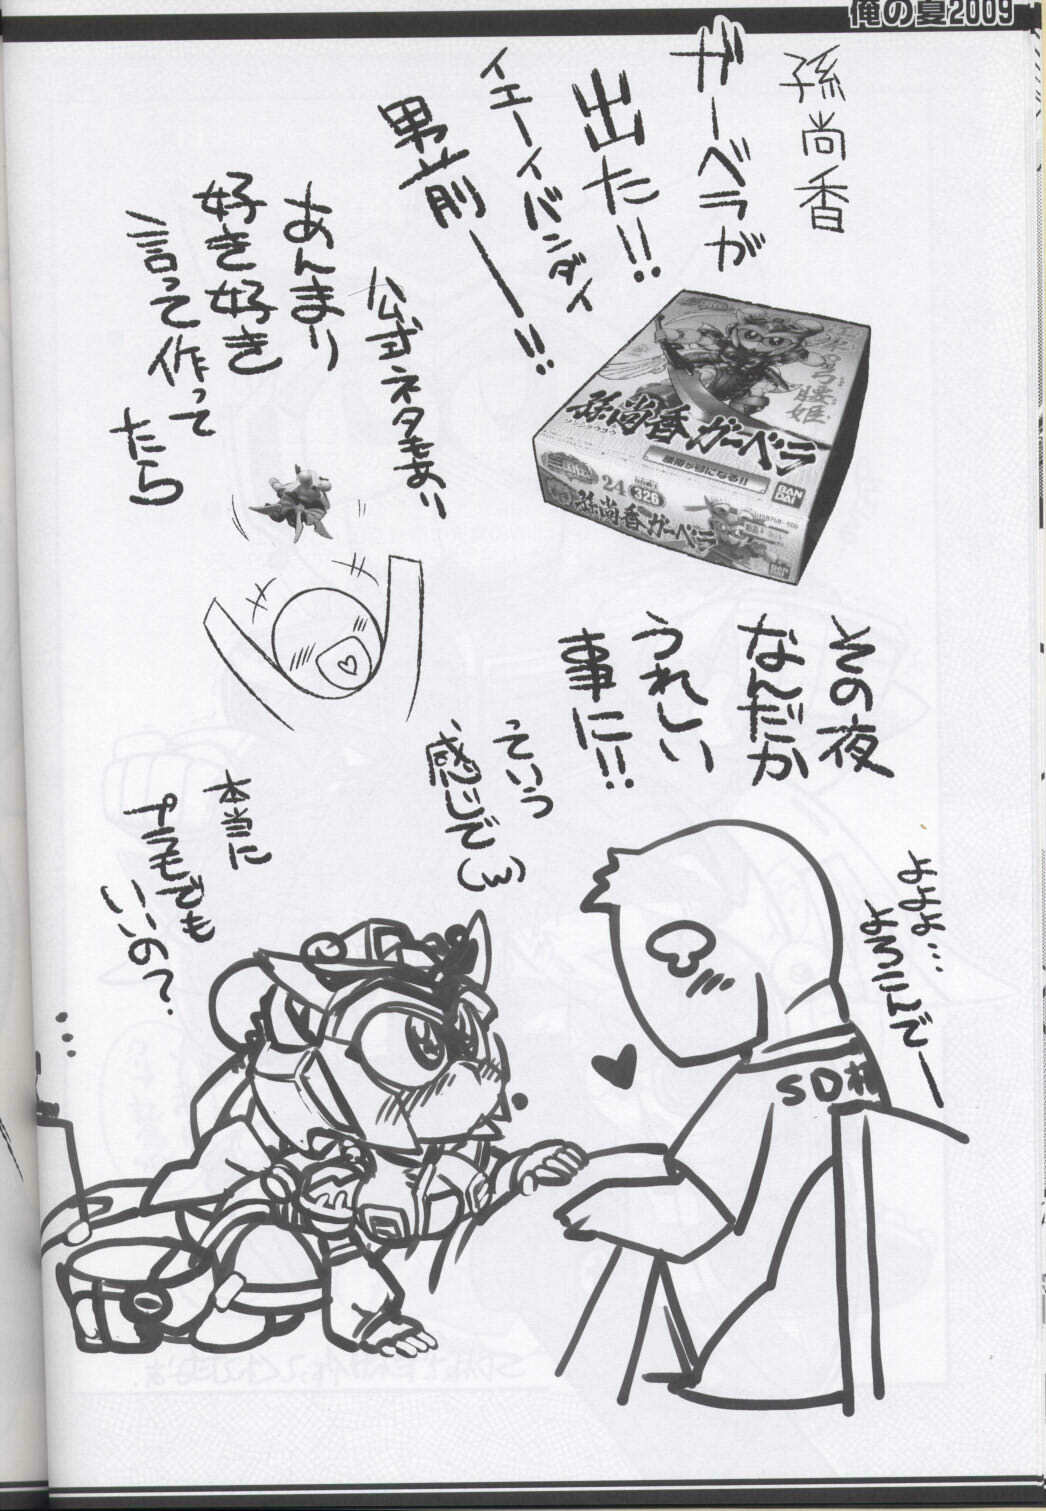 俺の夏2009
孫尚香
ガーベラが
出た!!
イエーイバンダイ
男前ー!!
公式ネタもあり
あんまり
好き好き
言って作って
たら
弓腰姫
孫尚香ガーベラ
ソンショウコウ
BANDAI
24
326
孫尚香ガーベラ
その夜
なんだか
うれしい
事に!!
っていう
感じで(w)
本当に
プラモでも
いいの?
よよよ…
よろこんでー
SD